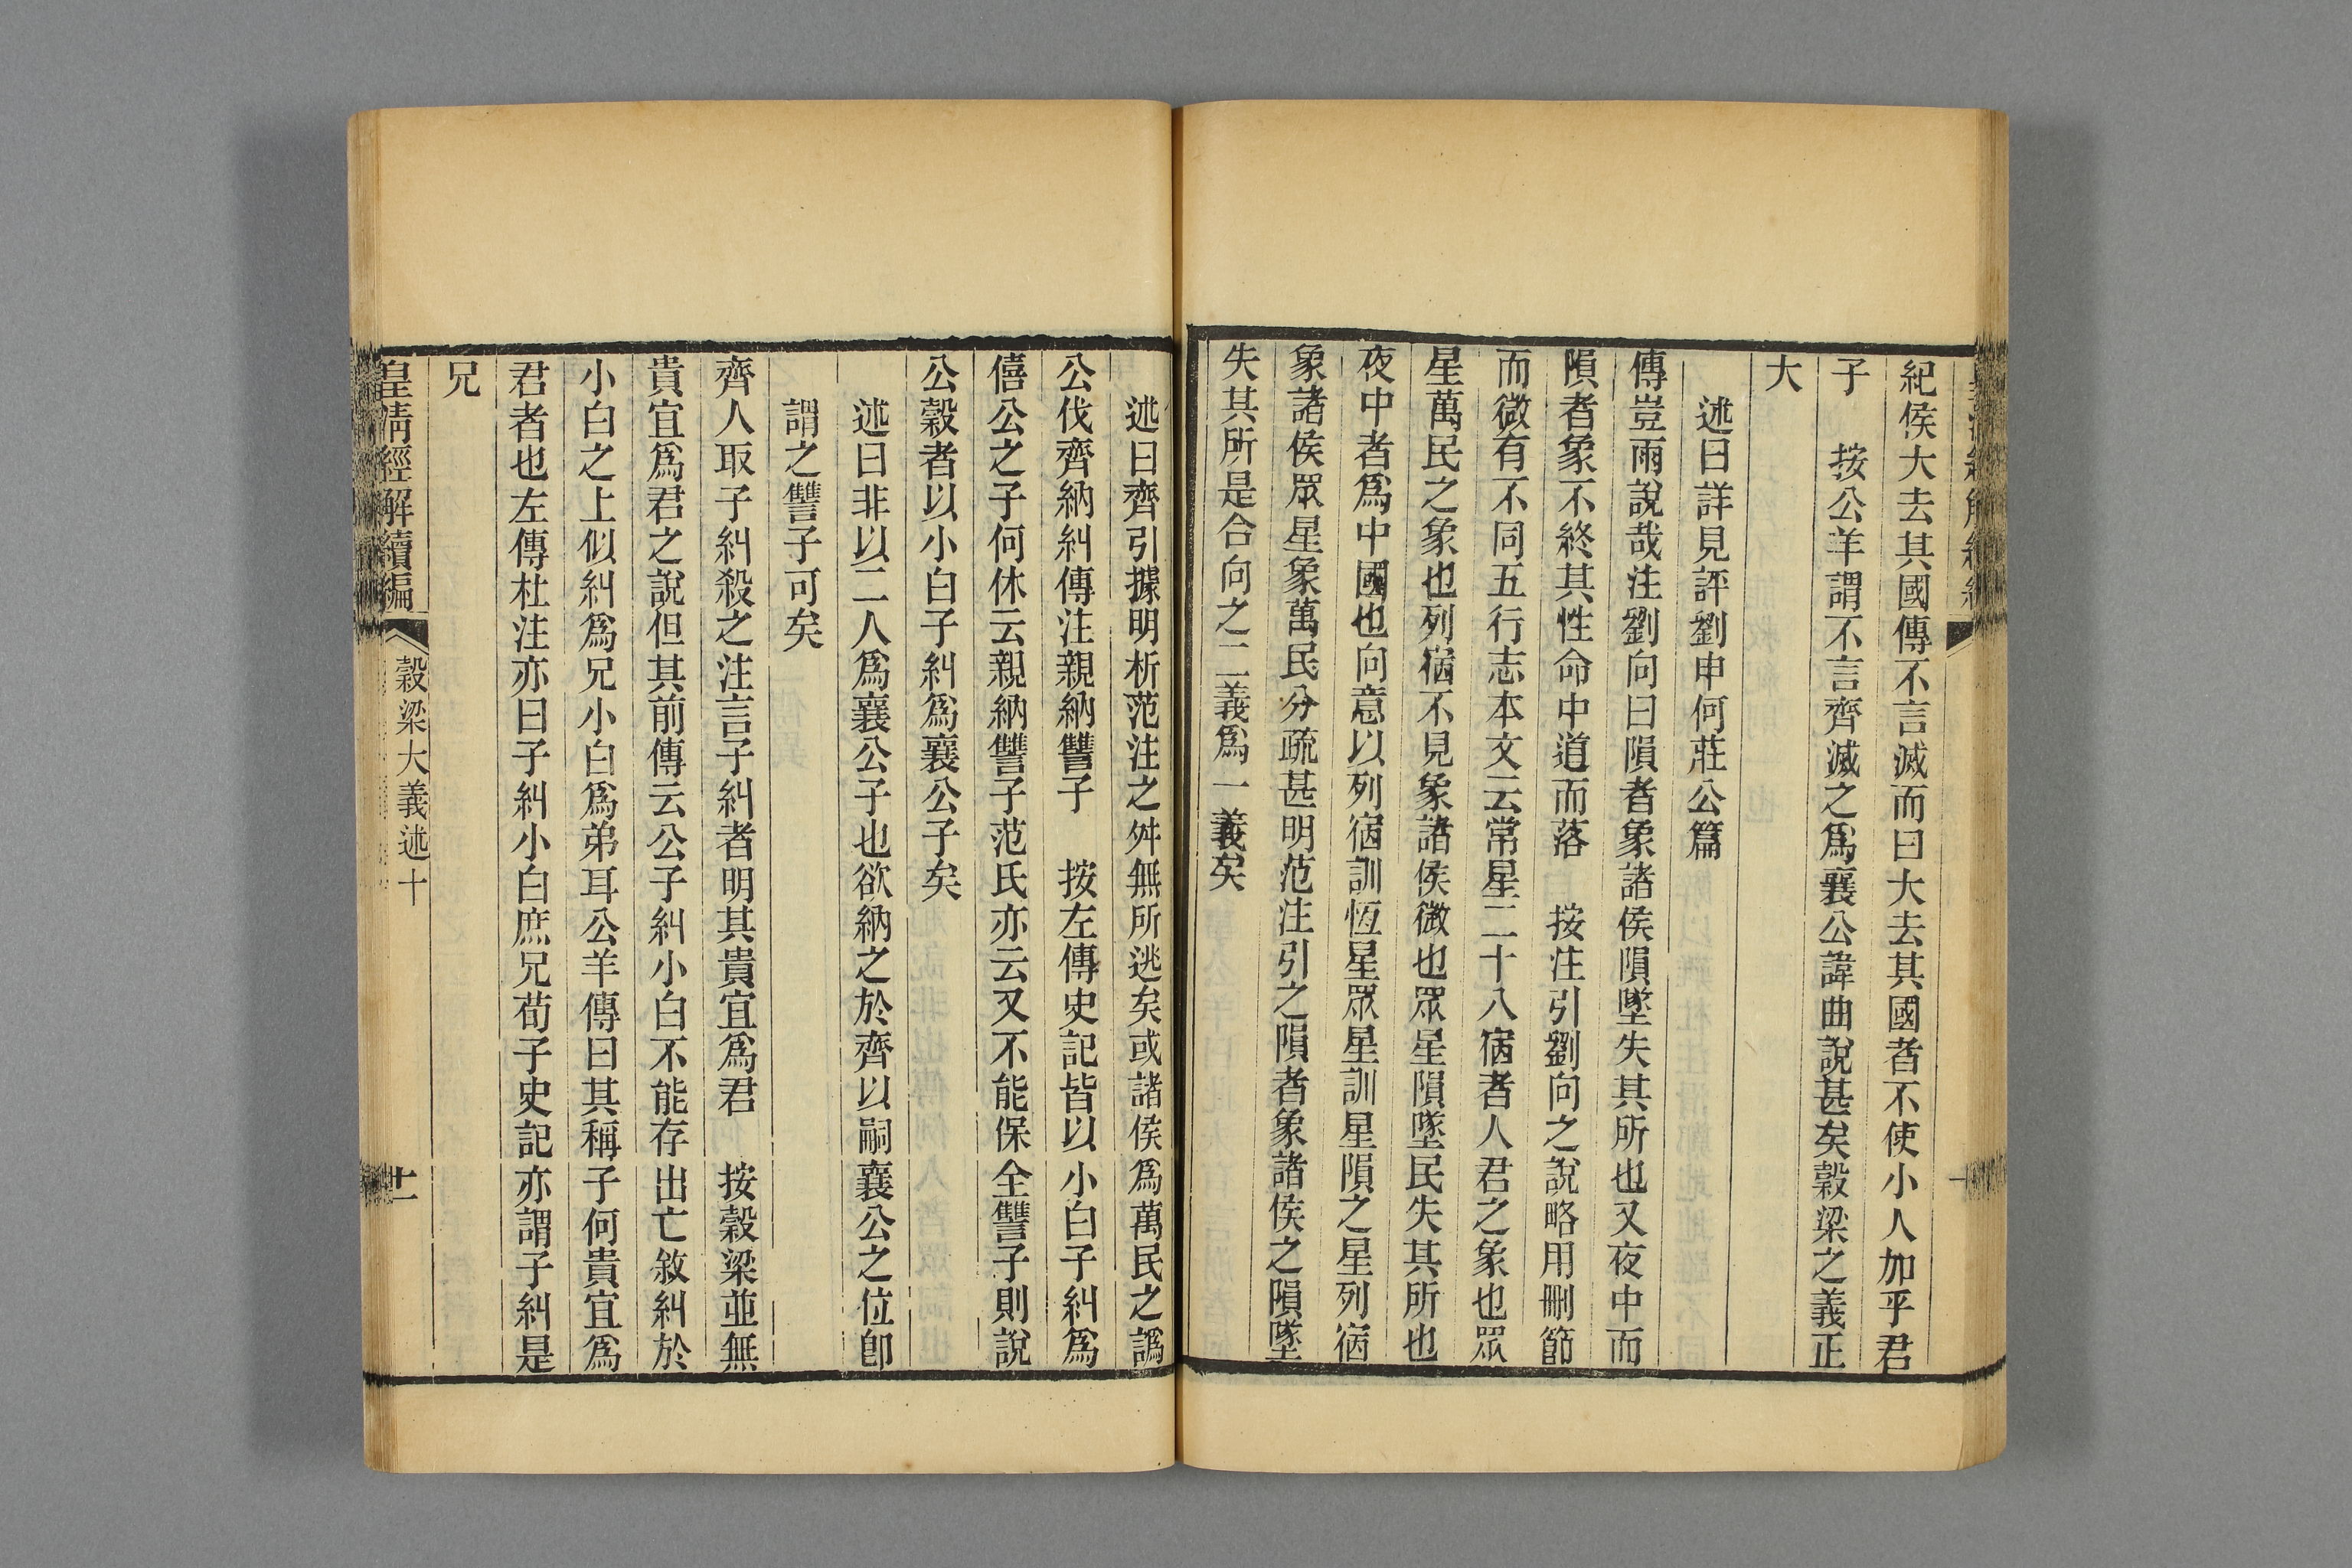 紀侯大去其國傳不言滅而曰大去其國者不使小人加乎君
子　按公羊謂不言齊滅之爲襄公諱曲說甚矣穀梁之義正
大
述曰詳見評劉申何莊公篇
傳豈雨說哉注劉向曰隕者象諸侯隕墜失其所也又夜中而
隕者象不終其性命中道而落　按注引劉向之說略用刪節
而微有不同五行志本文云常星二十八宿者人君之象也眾
星萬民之象也列宿不見象諸侯微也眾星隕墜民失其所也
夜中者爲中國也向意以列宿訓恆星眾星訓星隕之星列宿
象諸侯眾星象萬民分疏甚明范注引之隕者象諸侯之隕墜
失其所是合向之二義爲一義矣
述曰齊引據明析范注之舛無所逃矣或諸侯爲萬民之譌
公伐齊納糾傳注親納讐子　按左傳史記皆以小白子糾爲
僖公之子何休云親納讐子范氏亦云又不能保全讐子則說
公穀者以小白子糾爲襄公子矣
述曰非以二人爲襄公子也欲納之於齊以嗣襄公之位卽
謂之讐子可矣
齊人取子糾殺之注言子糾者明其貴宜爲君　按穀梁並無
貴宜爲君之說但其前傳云公子糾小白不能存出亡敘糾於
小白之上似糾爲兄小白爲弟耳公羊傳曰其稱子何貴宜爲
君者也左傳杜注亦曰子糾小白庶兄荀子史記亦謂子糾是
兄
皇清經解續編
穀梁大義述十
廿一